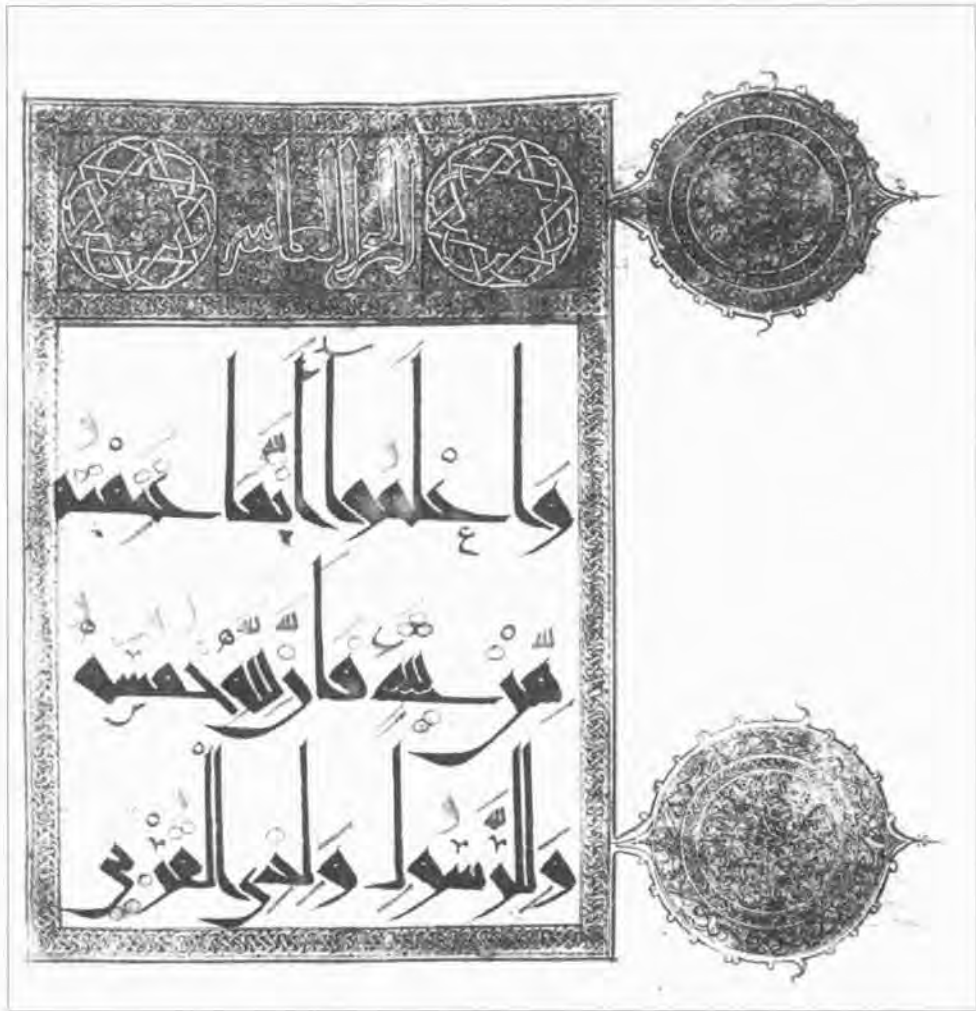 الجزء العاشر
وَاعْلَمُوا أَنَّمَا غَنِمْتُم
مِّن شَيْءٍ فَأَنَّ لِلَّهِ خُمُسَهُ
وَلِلرَّسُولِ وَلِذِي الْقُرْبَى